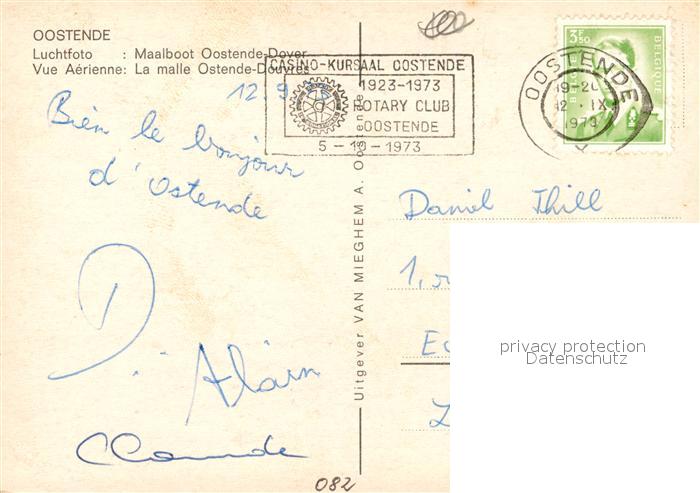 OOSTENDE
Luchtfoto : Maalboot Oostende-Dover
Vue Aérienne: La malle Ostende-Douvres
CASINO-KURSAAL OOSTENDE
1923-1973
ROTARY CLUB
OOSTENDE
5-10-1973
OOSTENDE
19-20
12 IX
1973
3F50
BELGIQUE
12.9
Bien le bonjour
d'Ostende
D.. Alain
Claude
Uitgever VAN MIEGHEM A. Oostende
Daniel Thill
1,
privacy protection
Datenschutz
082